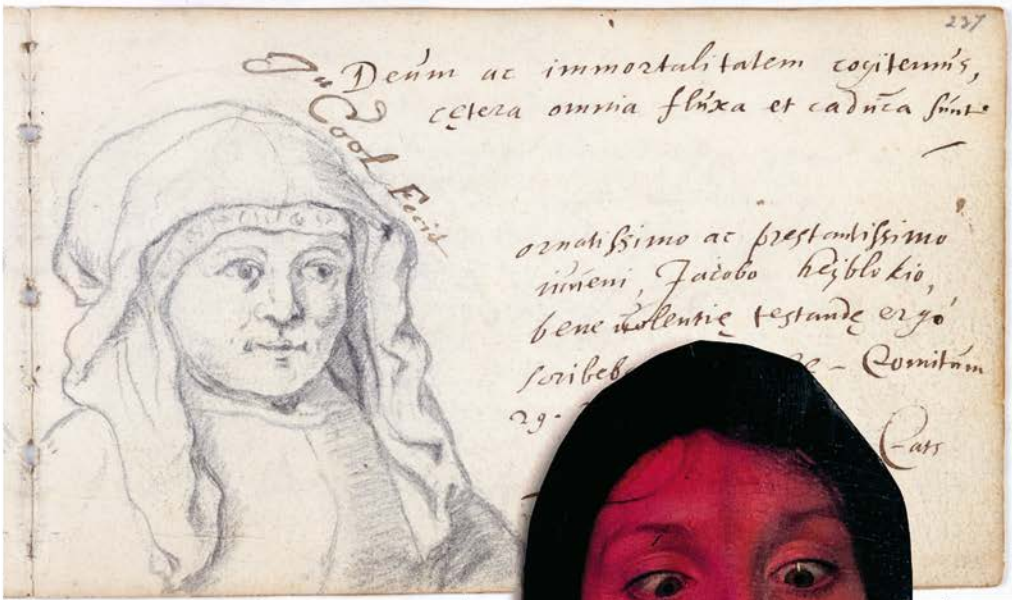 237
Deum ac immortalitatem cogitemus,
cętera omnia fluxa et caduca sunt
Jn Cool Fecit
ornatissimo ac pręstantissimo
iuveni, Jacobo heÿblokio,
benevolentię testandę ergo
scribeb
Comitum
29.
Cats